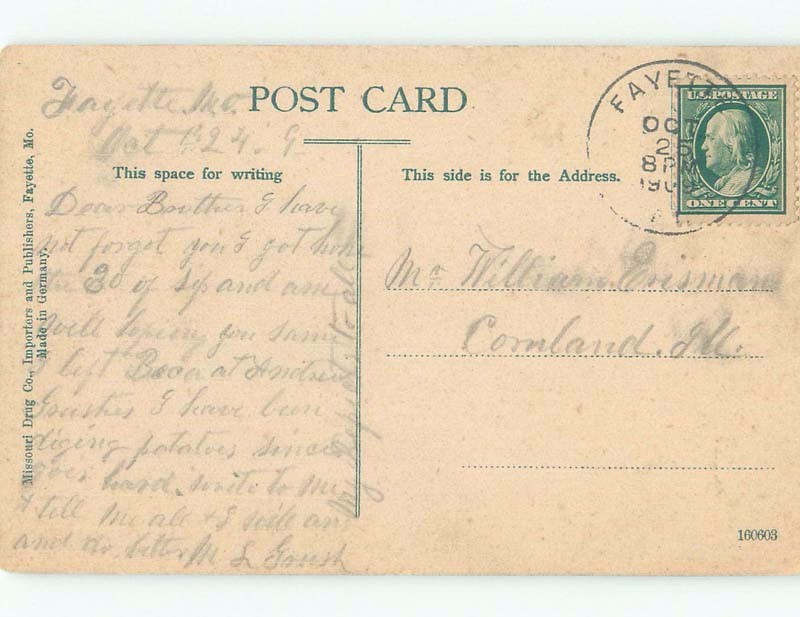 Fayette Mo.
POST CARD
Oct 24. 9
This space for writing
This side is for the Address.
Dear Brother I have
not forget you I got home
the 30 of Sep and am
well hoping you same
I left at Andrew
I have been
diging potatoes since
hard. write to me
& tell me all & I will an
and do better M L Grush
Mr. William Erisman
Cornland. Ill.
Missouri Drug Co., Importers and Publishers, Fayette, Mo.
Made in Germany.
FAYETTE
OCT
25
8 P
1909
U.S. POSTAGE
ONE CENT
160603